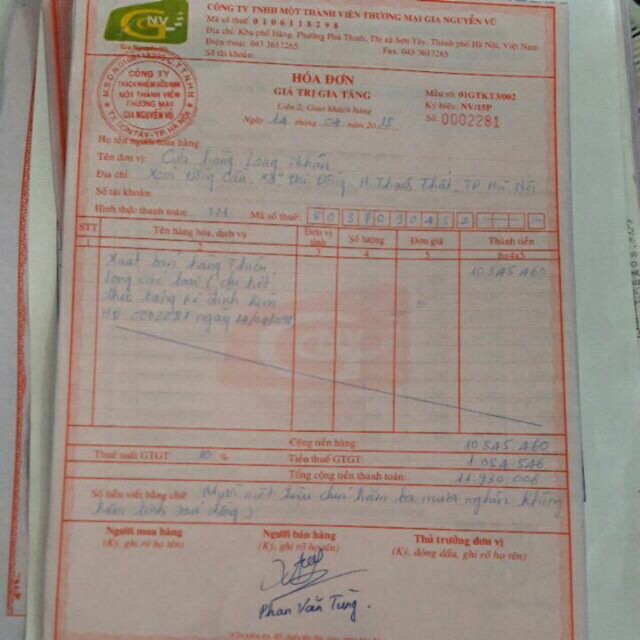 GNV
CÔNG TY TNHH MỘT THÀNH VIÊN THƯƠNG MẠI GIA NGUYỄN VŨ
Mã số thuế: 0106118298
Địa chỉ: Khu phố Hàng, Phường Phú Thịnh, Thị xã Sơn Tây, Thành phố Hà Nội, Việt Nam
Điện thoại: 043 3612265 Fax: 043 3617265
Số tài khoản:
CÔNG TY
TRÁCH NHIỆM HỮU HẠN
MỘT THÀNH VIÊN
THƯƠNG MẠI
GIA NGUYỄN VŨ
HÓA ĐƠN
GIÁ TRỊ GIA TĂNG
Liên 2: Giao khách hàng
Ngày 14 tháng 04 năm 2015
Mẫu số: 01GTKT3/002
Ký hiệu: NV/15P
Số: 0002281
Họ tên người mua hàng:
Tên đơn vị: Cửa hàng Long Nhâm
Địa chỉ: Xóm Đồng Cầu, Xã Đại Đồng, H. Thạch Thất, TP Hà Nội
Số tài khoản:
Hình thức thanh toán: TM Mã số thuế: 8037030452
STT Tên hàng hóa, dịch vụ Đơn vị tính Số lượng Đơn giá Thành tiền
1 2 3 4 5 6=4x5
Xuất bán hàng Thiên 10845460
Long các loại (chi tiết
theo bảng kê đính kèm
HĐ 0002281 ngày 14/04/2015
Cộng tiền hàng: 10845460
Thuế suất GTGT: 10 % Tiền thuế GTGT: 1 084 546
Tổng cộng tiền thanh toán: 11 930 006
Số tiền viết bằng chữ: Mười một triệu chín trăm ba mươi nghìn không
trăm linh sáu đồng
Người mua hàng Người bán hàng Thủ trưởng đơn vị
(Ký, ghi rõ họ tên) (Ký, ghi rõ họ tên) (Ký, đóng dấu, ghi rõ họ tên)
Phan Văn Tùng.